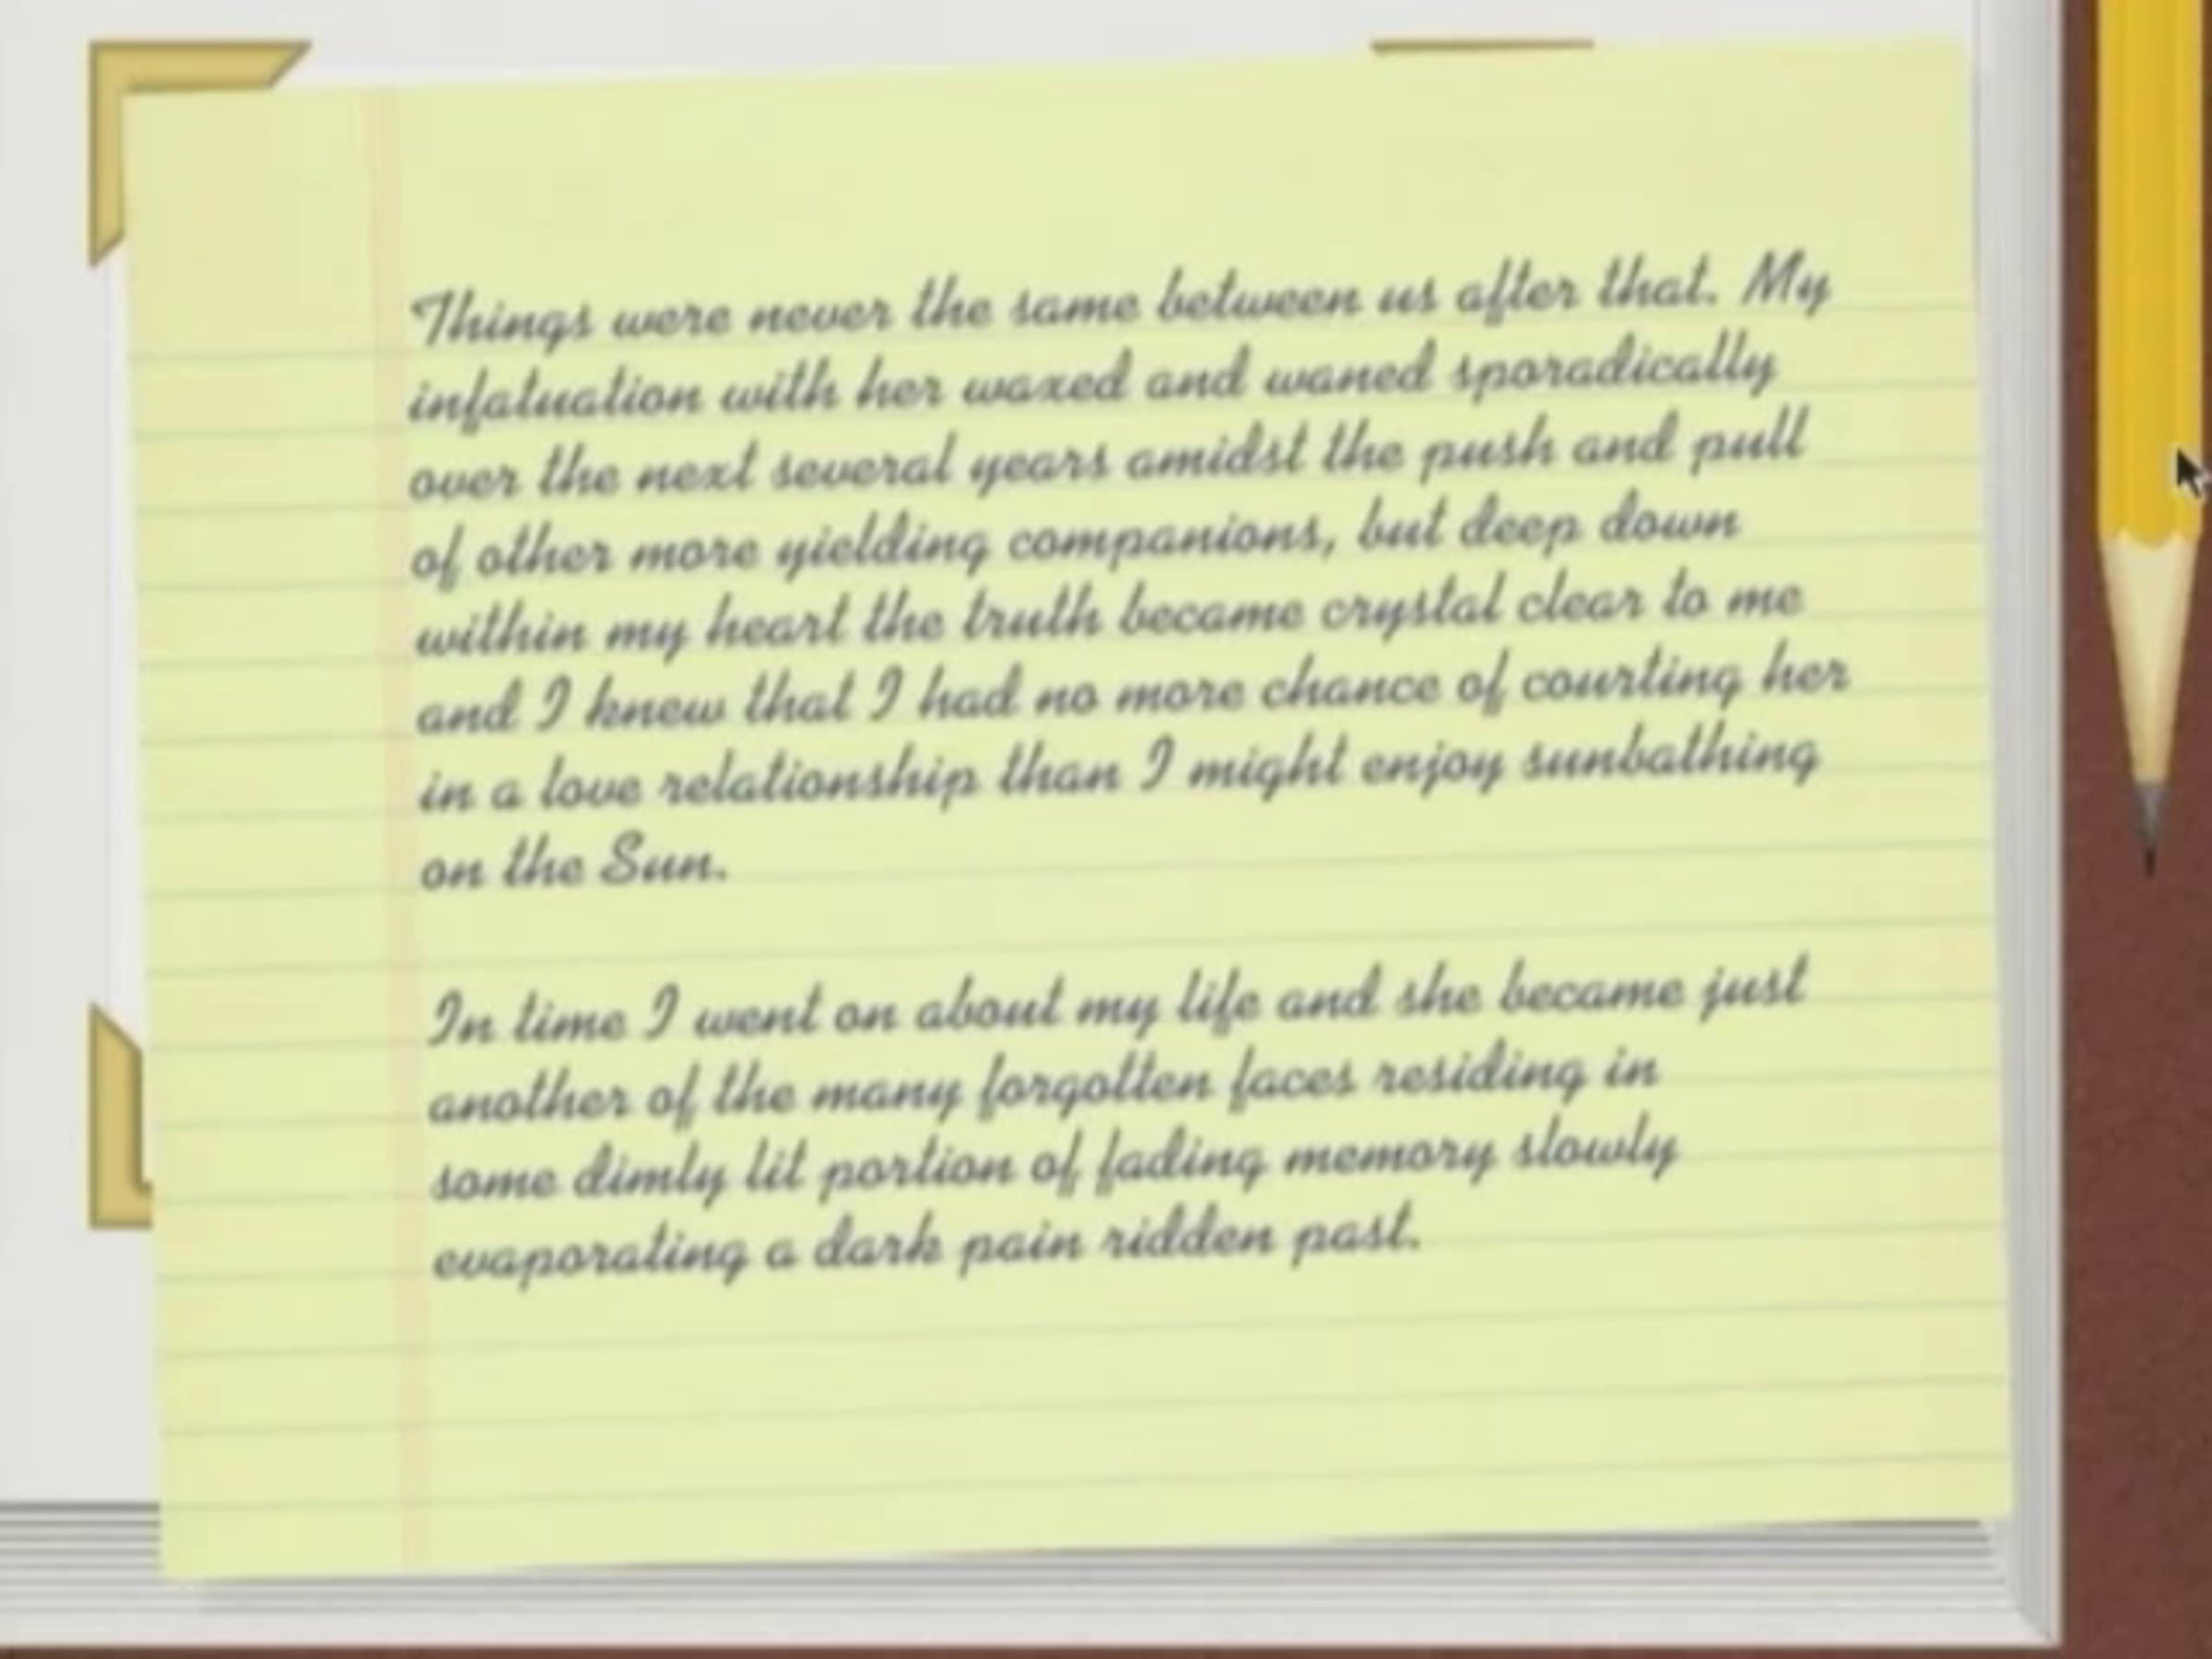 Things were never the same between us after that. My
infatuation with her waxed and waned sporadically
over the next several years amidst the push and pull
of other more yielding companions, but deep down
within my heart the truth became crystal clear to me
and I knew that I had no more chance of courting her
in a love relationship than I might enjoy sunbathing
on the Sun.
In time I went on about my life and she became just
another of the many forgotten faces residing in
some dimly lit portion of fading memory slowly
evaporating a dark pain ridden past.